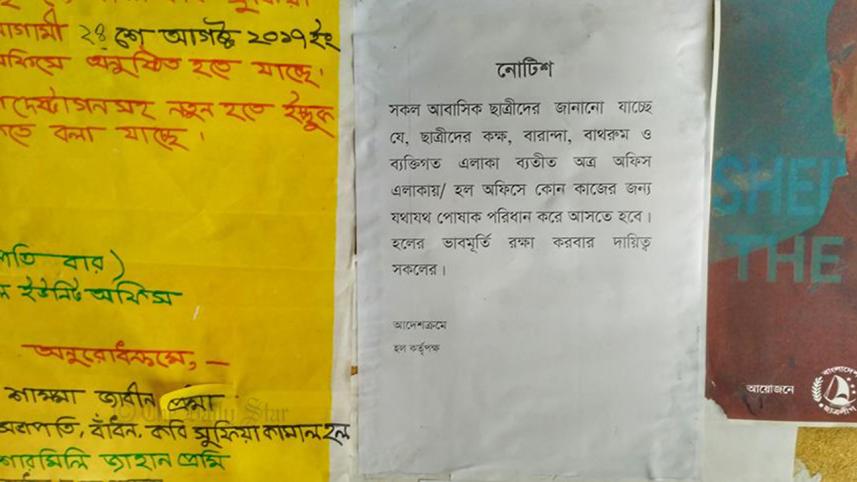 আগামী ২৪শে আগষ্ট ২০১৭ইং
অফিসে অনুষ্ঠিত হতে যাচ্ছে।
নতুন হতে ইচ্ছুক
বলা যাচ্ছে।
বার)
ইউনিট অফিস
অনুরোধক্রমে, —
শামমা জাবীন প্রেমা
সভাপতি, বাঁধন, কবি সুফিয়া কামাল হল
শারমিলি জাহান প্রেমি
© The Daily Star
নোটিশ
সকল আবাসিক ছাত্রীদের জানানো যাচ্ছে
যে, ছাত্রীদের কক্ষ, বারান্দা, বাথরুম ও
ব্যক্তিগত এলাকা ব্যতীত অত্র অফিস
এলাকায়/ হল অফিসে কোন কাজের জন্য
যথাযথ পোষাক পরিধান করে আসতে হবে।
হলের ভাবমূর্তি রক্ষা করবার দায়িত্ব
সকলের।
আদেশক্রমে
হল কর্তৃপক্ষ
SHEI
THE
আয়োজনে
বাংলাদেশ
ছাত্রলীগ